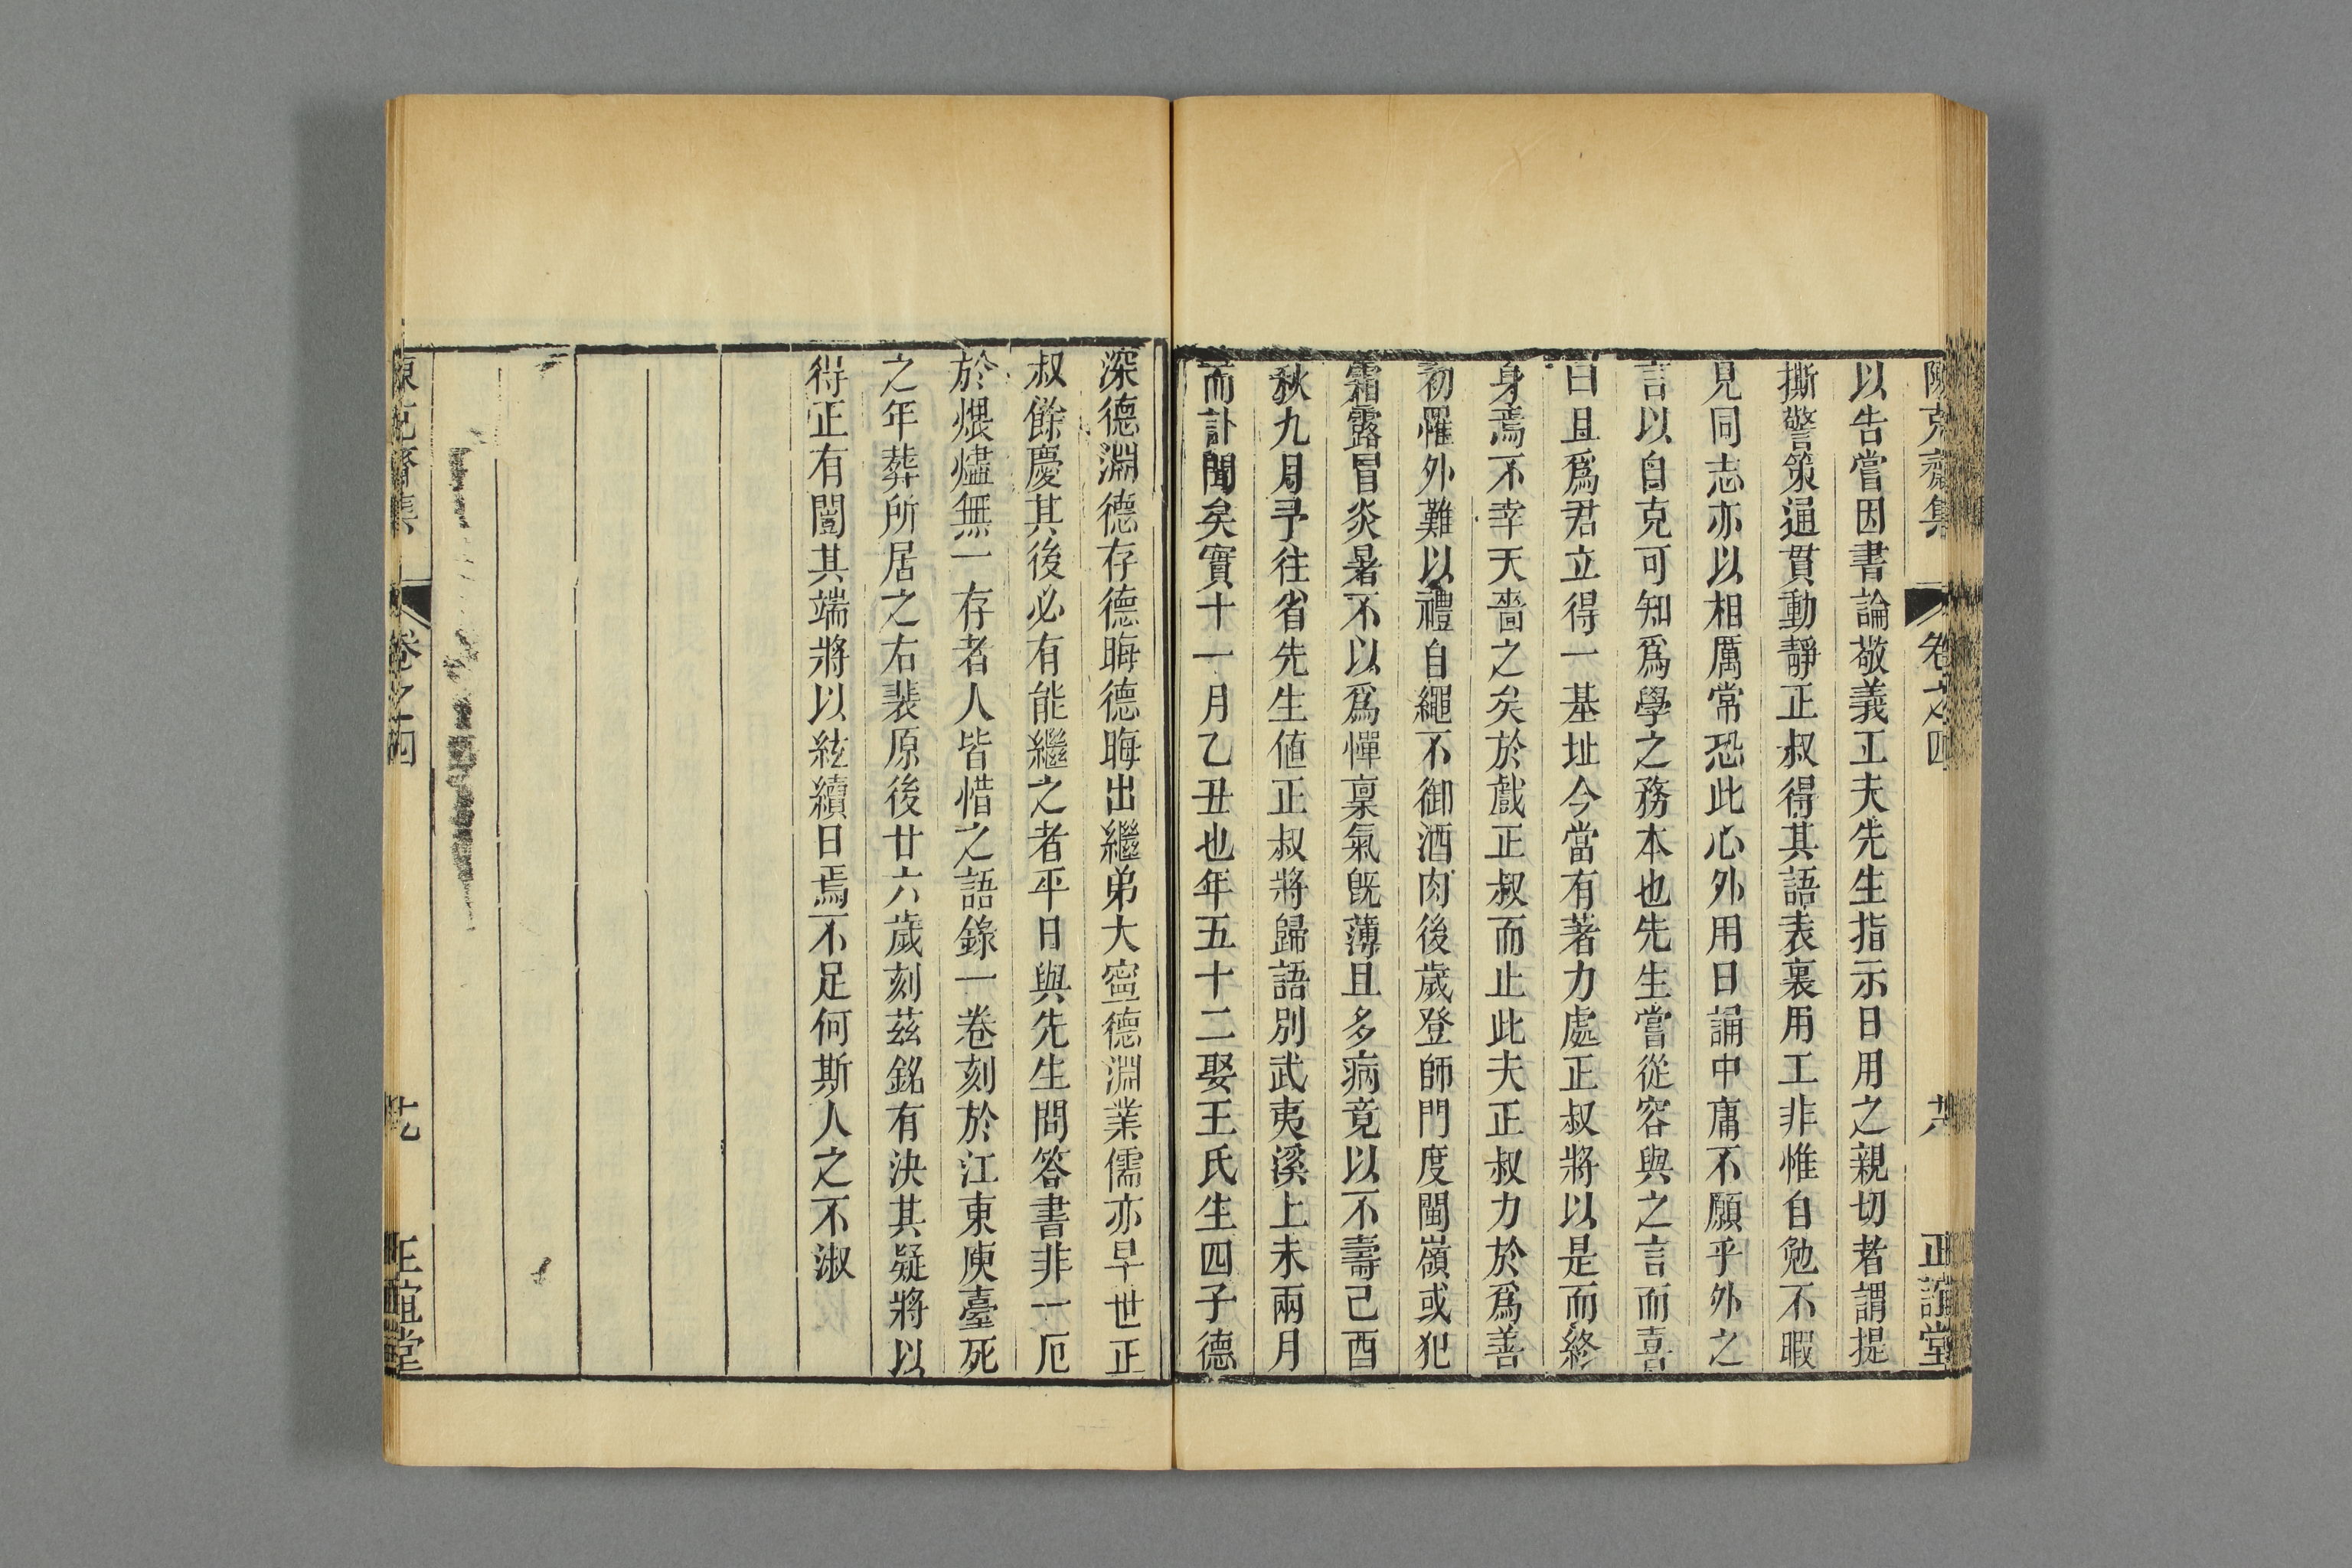 陳克齋集 卷之四 共 正誼堂
以告嘗因書論敬義工夫先生指示日用之親切者謂提
撕警策通貫動靜正叔得其語表裏用工非惟自勉不暇
見同志亦以相厲常恐此心外用日誦中庸不願乎外之
言以自克可知爲學之務本也先生嘗從容與之言而喜
曰且爲君立得一基址今當有著力處正叔將以是而終
身焉不幸天嗇之矣於戲正叔而止此夫正叔力於爲善
初罹外難以禮自繩不御酒肉後歲登師門度閩嶺或犯
霜露冒炎暑不以爲憚稟氣旣薄且多病竟以不壽己酉
秋九月予往省先生値正叔將歸語別武夷溪上未兩月
而訃聞矣實十一月乙丑也年五十二娶王氏生四子德
深德淵德存德晦德晦出繼弟大寍德淵業儒亦早世正
叔餘慶其後必有能繼之者平日與先生問答書非一厄
於煨燼無一存者人皆惜之語錄一卷刻於江東庾臺死
之年葬所居之右裴原後廿六歲刻茲銘有決其疑將以
得正有闓其端將以紘續日焉不足何斯人之不淑
陳克齋集 卷之四 正誼堂